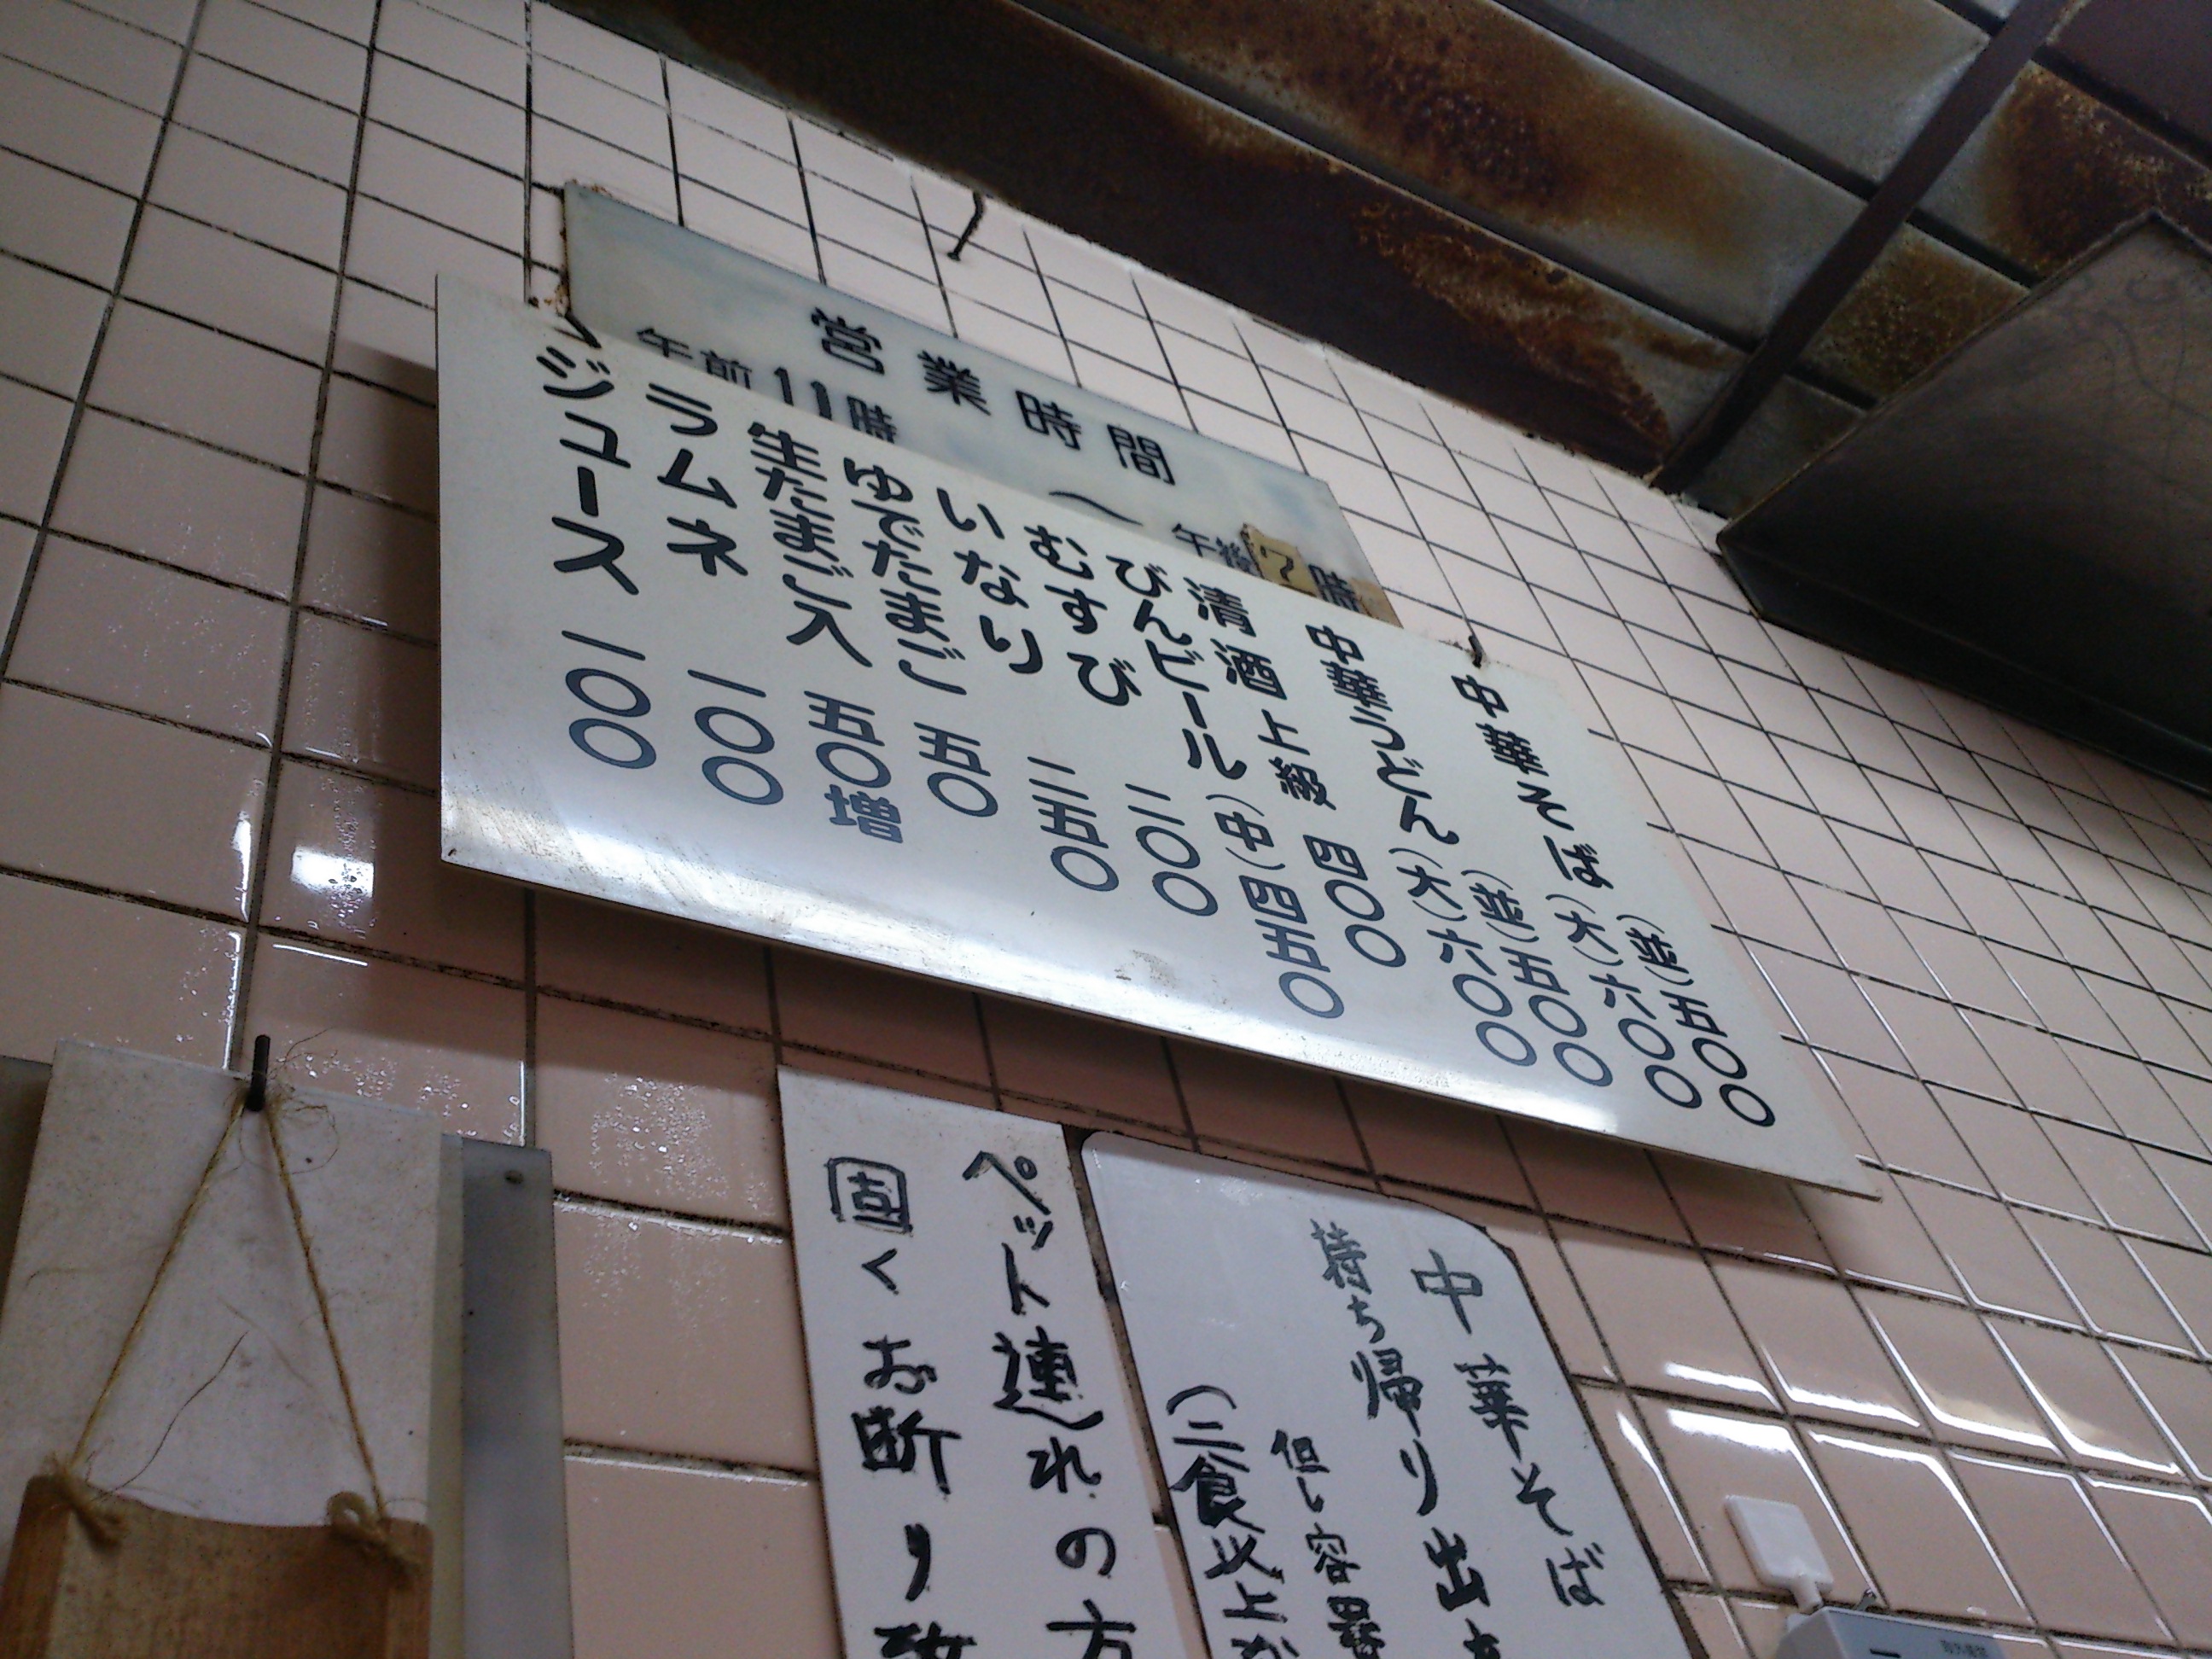 営業時間
午前11時〜午後7時
中華そば(並)五〇〇
(大)六〇〇
中華うどん(並)五〇〇
(大)六〇〇
清酒上級 四〇〇
びんビール(中)四五〇
むすび 二〇〇
いなり 二五〇
ゆでたまご 五〇
生たまご入 五〇増
ラムネ 一〇〇
ジュース 一〇〇
中華そば
持ち帰り出
但し容器
(二食以上
ペット連れの方
固くお断り致